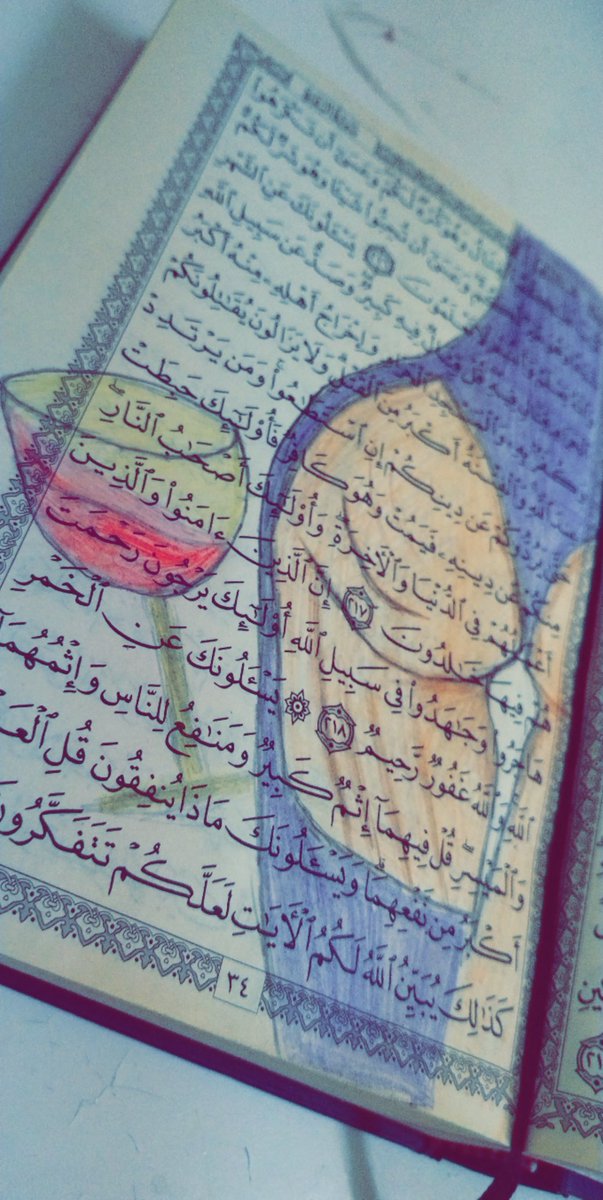 وَهُوَ كُرْهٌ لَّكُمْ وَعَسَىٰٓ أَن تَكْرَهُوا۟
وَعَسَىٰٓ أَن تُحِبُّوا۟ شَيْـًٔا وَهُوَ شَرٌّ لَّكُمْ
يَسْـَٔلُونَكَ عَنِ ٱلشَّهْرِ
فِيهِ كَبِيرٌ وَصَدٌّ عَن سَبِيلِ ٱللَّهِ
وَإِخْرَاجُ أَهْلِهِۦ مِنْهُ أَكْبَرُ
أَكْبَرُ مِنَ ٱلْقَتْلِ وَلَا يَزَالُونَ يُقَٰتِلُونَكُمْ
يَرُدُّوكُمْ عَن دِينِكُمْ إِنِ ٱسْتَطَٰعُوا۟ وَمَن يَرْتَدِدْ
مِنكُمْ عَن دِينِهِۦ فَيَمُتْ وَهُوَ كَافِرٌ فَأُو۟لَٰٓئِكَ حَبِطَتْ
أَعْمَٰلُهُمْ فِى ٱلدُّنْيَا وَٱلْـَٔاخِرَةِ وَأُو۟لَٰٓئِكَ أَصْحَٰبُ ٱلنَّارِ
هُمْ فِيهَا خَٰلِدُونَ ٢١٧ إِنَّ ٱلَّذِينَ ءَامَنُوا۟ وَٱلَّذِينَ
هَاجَرُوا۟ وَجَٰهَدُوا۟ فِى سَبِيلِ ٱللَّهِ أُو۟لَٰٓئِكَ يَرْجُونَ رَحْمَتَ
ٱللَّهِ وَٱللَّهُ غَفُورٌ رَّحِيمٌ ٢١٨ ۞ يَسْـَٔلُونَكَ عَنِ ٱلْخَمْرِ
وَٱلْمَيْسِرِ ۖ قُلْ فِيهِمَآ إِثْمٌ كَبِيرٌ وَمَنَٰفِعُ لِلنَّاسِ وَإِثْمُهُمَآ
أَكْبَرُ مِن نَّفْعِهِمَا وَيَسْـَٔلُونَكَ مَاذَا يُنفِقُونَ قُلِ
كَذَٰلِكَ يُبَيِّنُ ٱللَّهُ لَكُمُ ٱلْـَٔايَٰتِ لَعَلَّكُمْ تَتَفَكَّرُونَ
٣٤